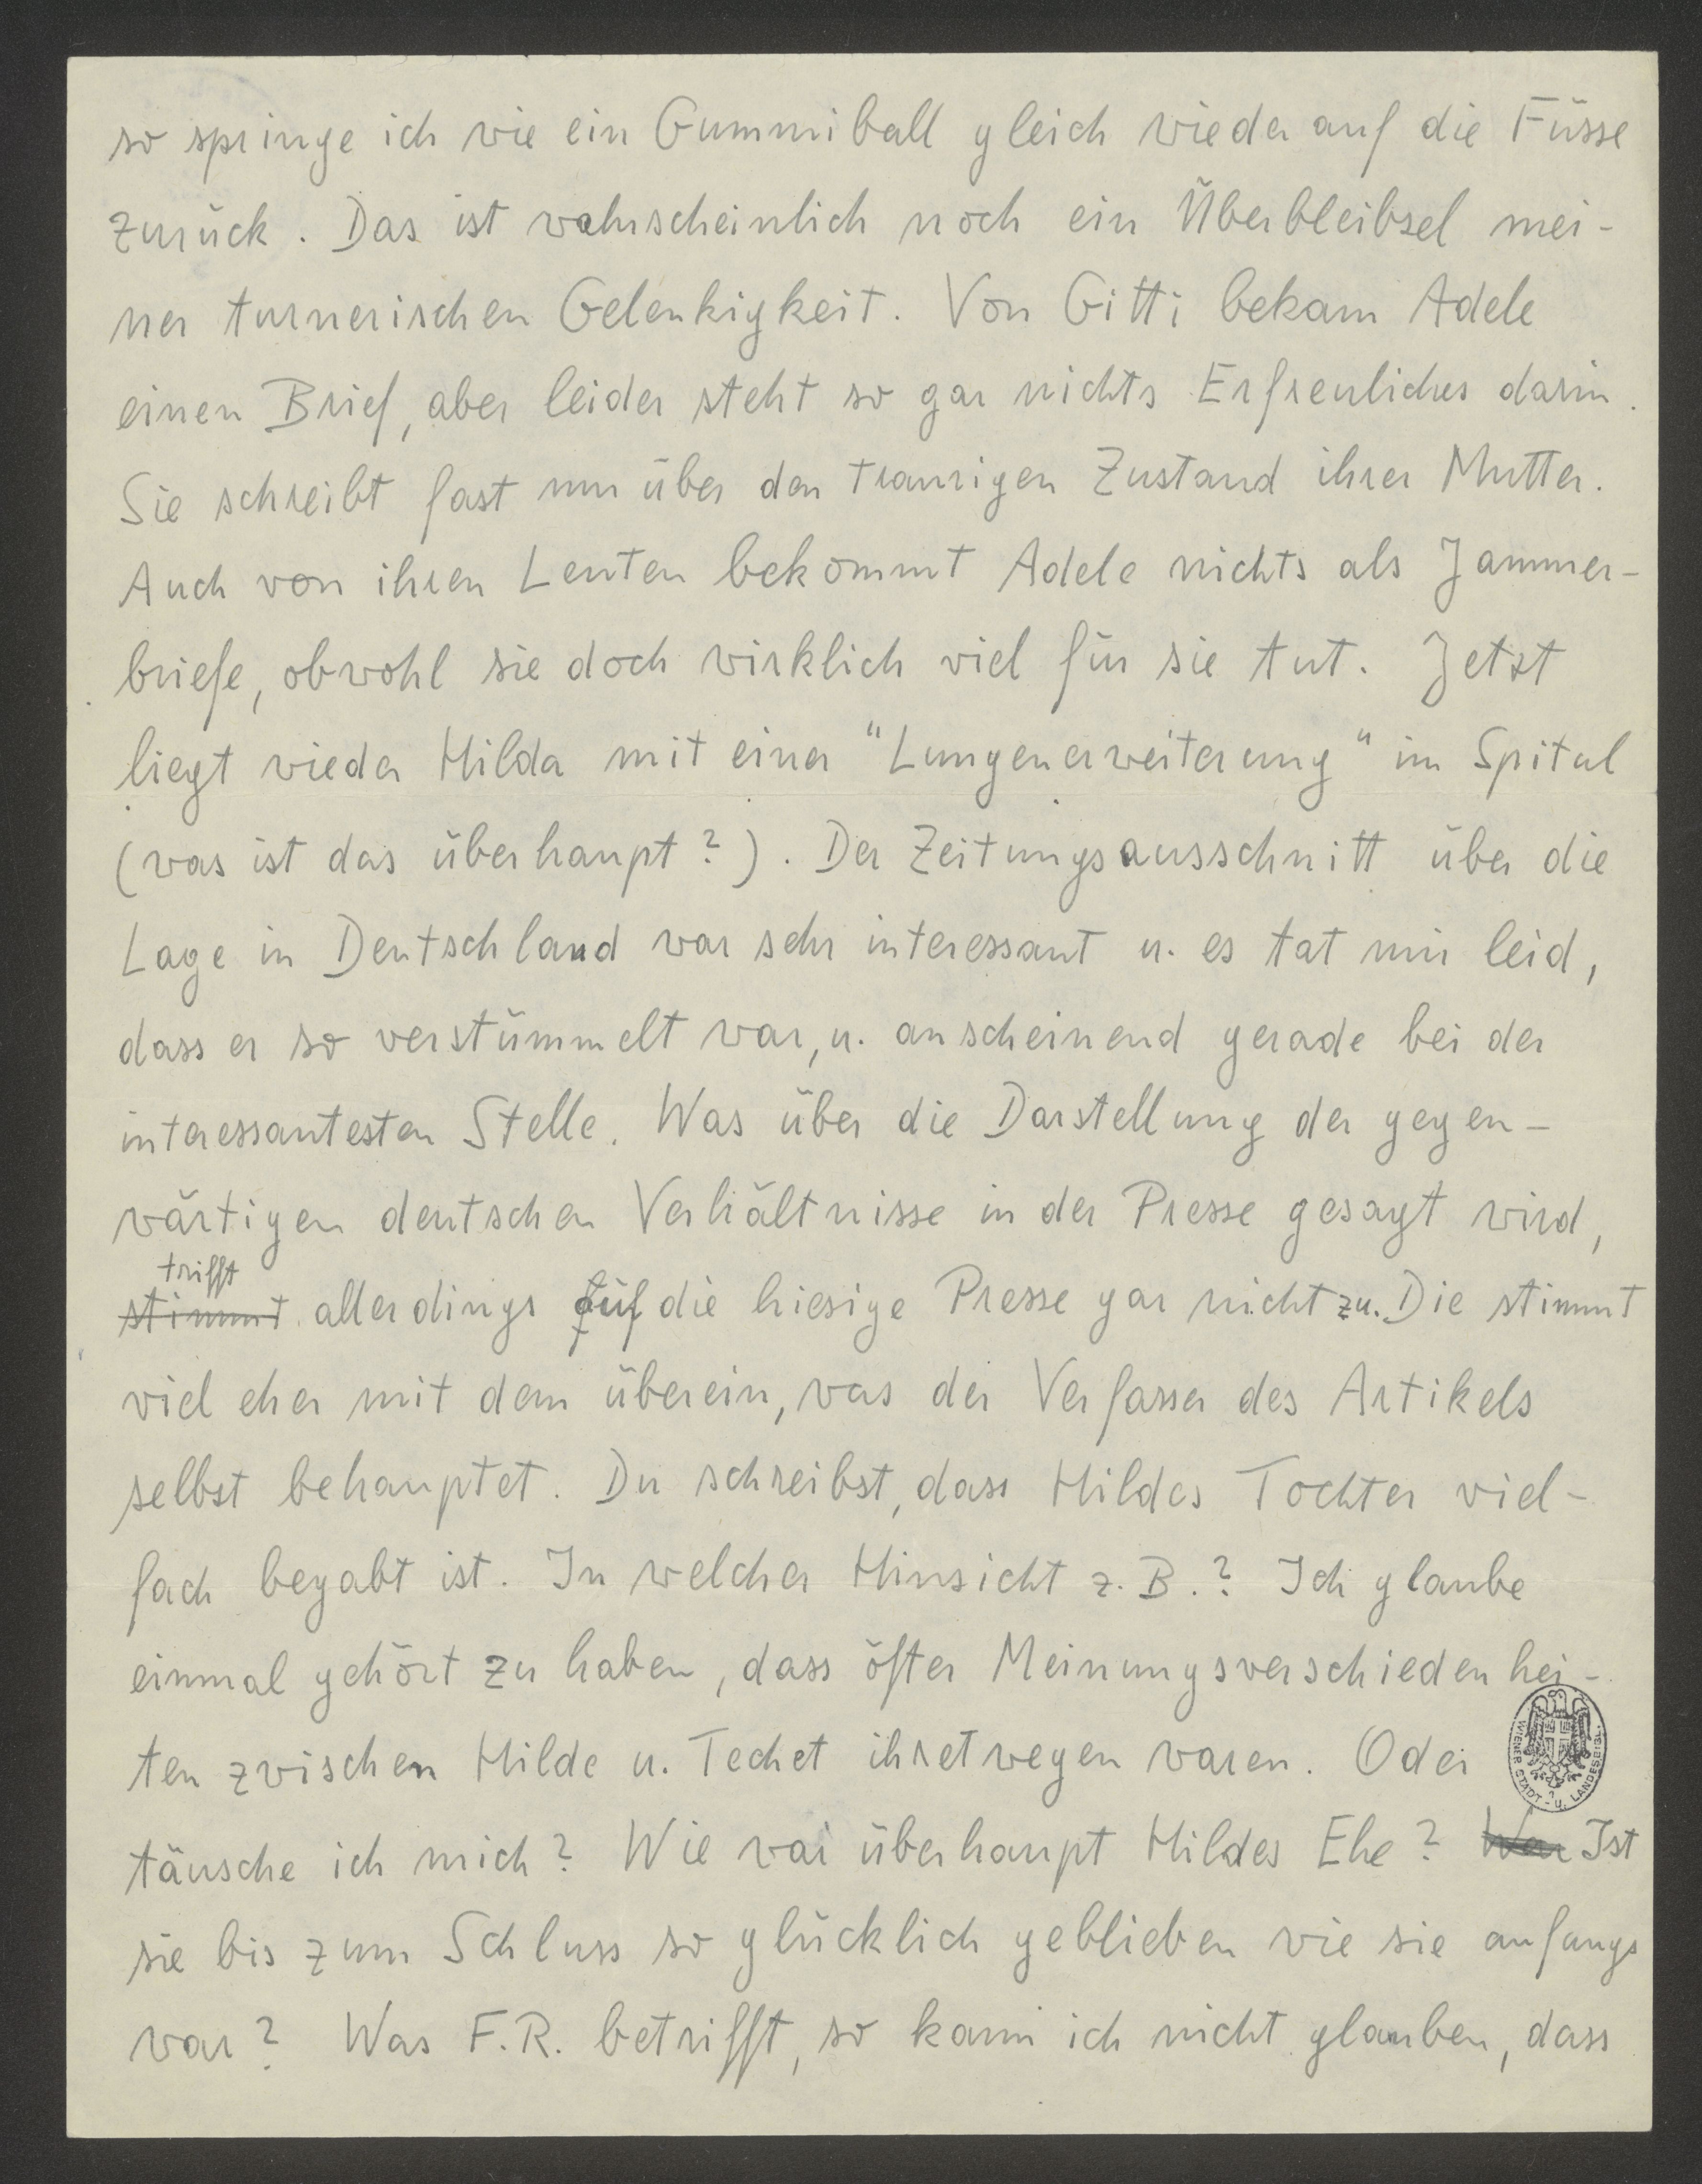 so springe ich wie ein Gummiball gleich wieder auf die Füsse
zurück. Das ist wahrscheinlich noch ein Überbleibsel mei-
ner turnerischen Gelenkigkeit. Von Gitti bekam Adele
einen Brief, aber leider steht so gar nichts Erfreuliches darin.
Sie schreibt fast nur über den traurigen Zustand ihrer Mutter.
Auch von ihren Leuten bekommt Adele nichts als Jammer-
briefe, obwohl sie doch wirklich viel für sie tut. Jetzt
liegt wieder Hilda mit einer "Lungenerweiterung" im Spital
(was ist das überhaupt?). Der Zeitungsausschnitt über die
Lage in Deutschland war sehr interessant u. es tat mir leid,
dass er so verstümmelt war, u. anscheinend gerade bei der
interessantesten Stelle. Was über die Darstellung der gegen-
wärtigen deutschen Verhältnisse in der Presse gesagt wird,
trifft
stimmt allerdings auf die hiesige Presse gar nicht zu. Die stimmt
viel eher mit dem überein, was der Verfasser des Artikels
selbst behauptet. Du schreibst, dass Hildes Tochter viel-
fach begabt ist. In welcher Hinsicht z. B.? Ich glaube
einmal gehört zu haben, dass öfter Meinungsverschiedenhei-
ten zwischen Hilde u. Techet ihretwegen waren. Oder
WIENER STADT- u. LANDESBIBL.
täusche ich mich? Wie war überhaupt Hildes Ehe? War Ist
sie bis zum Schluss so glücklich geblieben wie sie anfangs
war? Was F.R. betrifft, so kann ich nicht glauben, dass